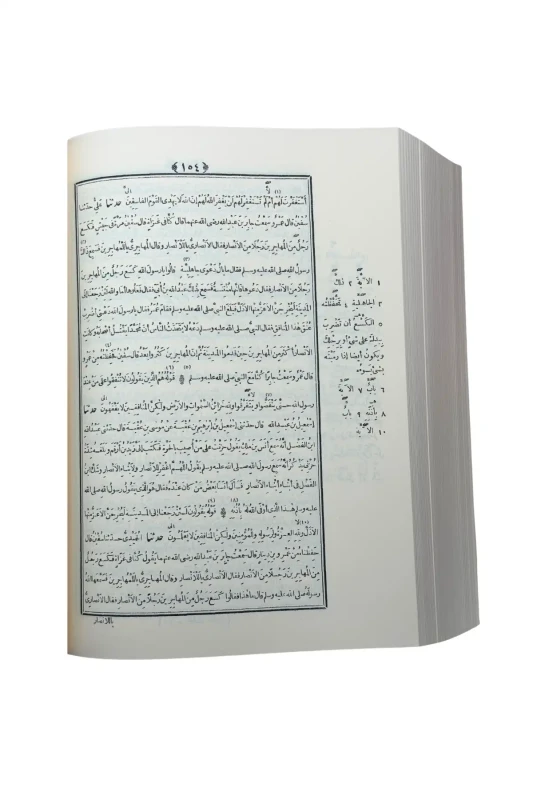 ﴿١٥٤﴾
أَسْتَغْفَرْتَ لَهُمْ أَمْ لَمْ تَسْتَغْفِرْ لَهُمْ لَنْ يَغْفِرَ اللهُ لَهُمْ إِنَّ اللهَ لَا يَهْدِى الْقَوْمَ الْفَاسِقِينَ حدثنا عَلِىٌّ حدثنا
سُفْيٰنُ قَالَ عَمْرٌو سَمِعْتُ جَابِرَ بْنَ عَبْدِ اللهِ رضى الله عنهما قَالَ كُنَّا فِى غَزَاةٍ قَالَ سُفْيٰنُ مَرَّةً فِى جَيْشٍ فَكَسَعَ
رَجُلٌ مِنَ الْمُهَاجِرِينَ رَجُلًا مِنَ الْأَنْصَارِ فَقَالَ الْأَنْصَارِىُّ يَا لَلْأَنْصَارِ وَقَالَ الْمُهَاجِرِىُّ يَا لَلْمُهَاجِرِينَ فَسَمِعَ ذَاكَ
رسولُ اللهِ صلى الله عليه وسلم فَقَالَ مَا بَالُ دَعْوَى جَاهِلِيَّةٍ قَالُوا يَا رسولَ اللهِ كَسَعَ رَجُلٌ مِنَ الْمُهَاجِرِينَ
رَجُلًا مِنَ الْأَنْصَارِ فَقَالَ دَعُوهَا فَإِنَّهَا مُنْتِنَةٌ فَسَمِعَ بِذٰلِكَ عَبْدُ اللهِ بْنُ أُبَىٍّ فَقَالَ فَعَلُوهَا أَمَا وَاللهِ لَئِنْ رَجَعْنَا إِلَى
الْمَدِينَةِ لَيُخْرِجَنَّ الْأَعَزُّ مِنْهَا الْأَذَلَّ فَبَلَغَ النبىَّ صلى الله عليه وسلم فَقَامَ عُمَرُ فَقَالَ يا رسولَ اللهِ دَعْنِى أَضْرِبْ
عُنُقَ هٰذَا الْمُنَافِقِ فَقَالَ النبىُّ صلى الله عليه وسلم دَعْهُ لَا يَتَحَدَّثُ النَّاسُ أَنَّ مُحَمَّدًا يَقْتُلُ أَصْحَابَهُ وَكَانَتِ
الْأَنْصَارُ أَكْثَرَ مِنَ الْمُهَاجِرِينَ حِينَ قَدِمُوا الْمَدِينَةَ ثُمَّ إِنَّ الْمُهَاجِرِينَ كَثُرُوا بَعْدُ قَالَ سُفْيٰنُ فَحَفِظْتُهُ مِنْ عَمْرٍو
قَالَ عَمْرٌو سَمِعْتُ جَابِرًا كُنَّا مَعَ النبىِّ صلى الله عليه وسلم قَوْلُهُ هُمُ الَّذِينَ يَقُولُونَ لَا تُنْفِقُوا عَلَى مَنْ عِنْدَ
رسولِ اللهِ حَتَّى يَنْفَضُّوا وَيَتَفَرَّقُوا وَلِلّٰهِ خَزَائِنُ السَّمٰوَاتِ وَالْأَرْضِ وَلٰكِنَّ الْمُنَافِقِينَ لَا يَفْقَهُونَ حدثنا
إِسْمٰعِيلُ بْنُ عَبْدِ اللهِ قَالَ حدثنى إِسْمٰعِيلُ بْنُ إِبْرٰهِيمَ بْنِ عُقْبَةَ عَنْ مُوسَى بْنِ عُقْبَةَ قَالَ حدثنى عَبْدُ اللهِ
ابْنُ الْفَضْلِ أَنَّهُ سَمِعَ أَنَسَ بْنَ مٰلِكٍ يَقُولُ حَزِنْتُ عَلَى مَنْ أُصِيبَ بِالْحَرَّةِ فَكَتَبَ إِلَىَّ زَيْدُ بْنُ أَرْقَمَ وَبَلَغَهُ شِدَّةُ
حُزْنِى يَذْكُرُ أَنَّهُ سَمِعَ رسولَ اللهِ صلى الله عليه وسلم يَقُولُ اللّٰهُمَّ اغْفِرْ لِلْأَنْصَارِ وَلِأَبْنَاءِ الْأَنْصَارِ وَشَكَّ ابْنُ
الْفَضْلِ فِى أَبْنَاءِ أَبْنَاءِ الْأَنْصَارِ فَسَأَلَ أَنَسًا بَعْضُ مَنْ كَانَ عِنْدَهُ فَقَالَ هُوَ الَّذِى يَقُولُ رسولُ اللهِ صلى الله
عليه وسلم هٰذَا الَّذِى أَوْفَى اللهُ لَهُ بِأُذُنِهِ قَوْلُهُ يَقُولُونَ لَئِنْ رَجَعْنَا إِلَى الْمَدِينَةِ لَيُخْرِجَنَّ الْأَعَزُّ مِنْهَا
الْأَذَلَّ وَلِلّٰهِ الْعِزَّةُ وَلِرَسُولِهِ وَلِلْمُؤْمِنِينَ وَلٰكِنَّ الْمُنَافِقِينَ لَا يَعْلَمُونَ حدثنا الْحُمَيْدِىُّ حدثنا سُفْيٰنُ قَالَ
حَفِظْنَاهُ مِنْ عَمْرِو بْنِ دِينَارٍ قَالَ سَمِعْتُ جَابِرَ بْنَ عَبْدِ اللهِ رضى الله عنهما يَقُولُ كُنَّا فِى غَزَاةٍ فَكَسَعَ رَجُلٌ
مِنَ الْمُهَاجِرِينَ رَجُلًا مِنَ الْأَنْصَارِ فَقَالَ الْأَنْصَارِىُّ يَا لَلْأَنْصَارِ وَقَالَ الْمُهَاجِرِىُّ يَا لَلْمُهَاجِرِينَ فَسَمَّعَهَا اللهُ
رسولَهُ صلى الله عليه وسلم قَالَ مَا هٰذَا فَقَالُوا كَسَعَ رَجُلٌ مِنَ الْمُهَاجِرِينَ رَجُلًا مِنَ الْأَنْصَارِ فَقَالَ الْأَنْصَارِىُّ
يا للانصار
١ الآيةَ ٢ ذلك
٣ الجاهلية ٤ تحفّظته
٥ الكسع أن تضرب
بيدك على شئ أو برجلك
ويكون أيضا إذا رميته
بشئ يسوءه
٦ باب ٧ الآية
٨ بأذنه ٩ باب
١٠ الآية